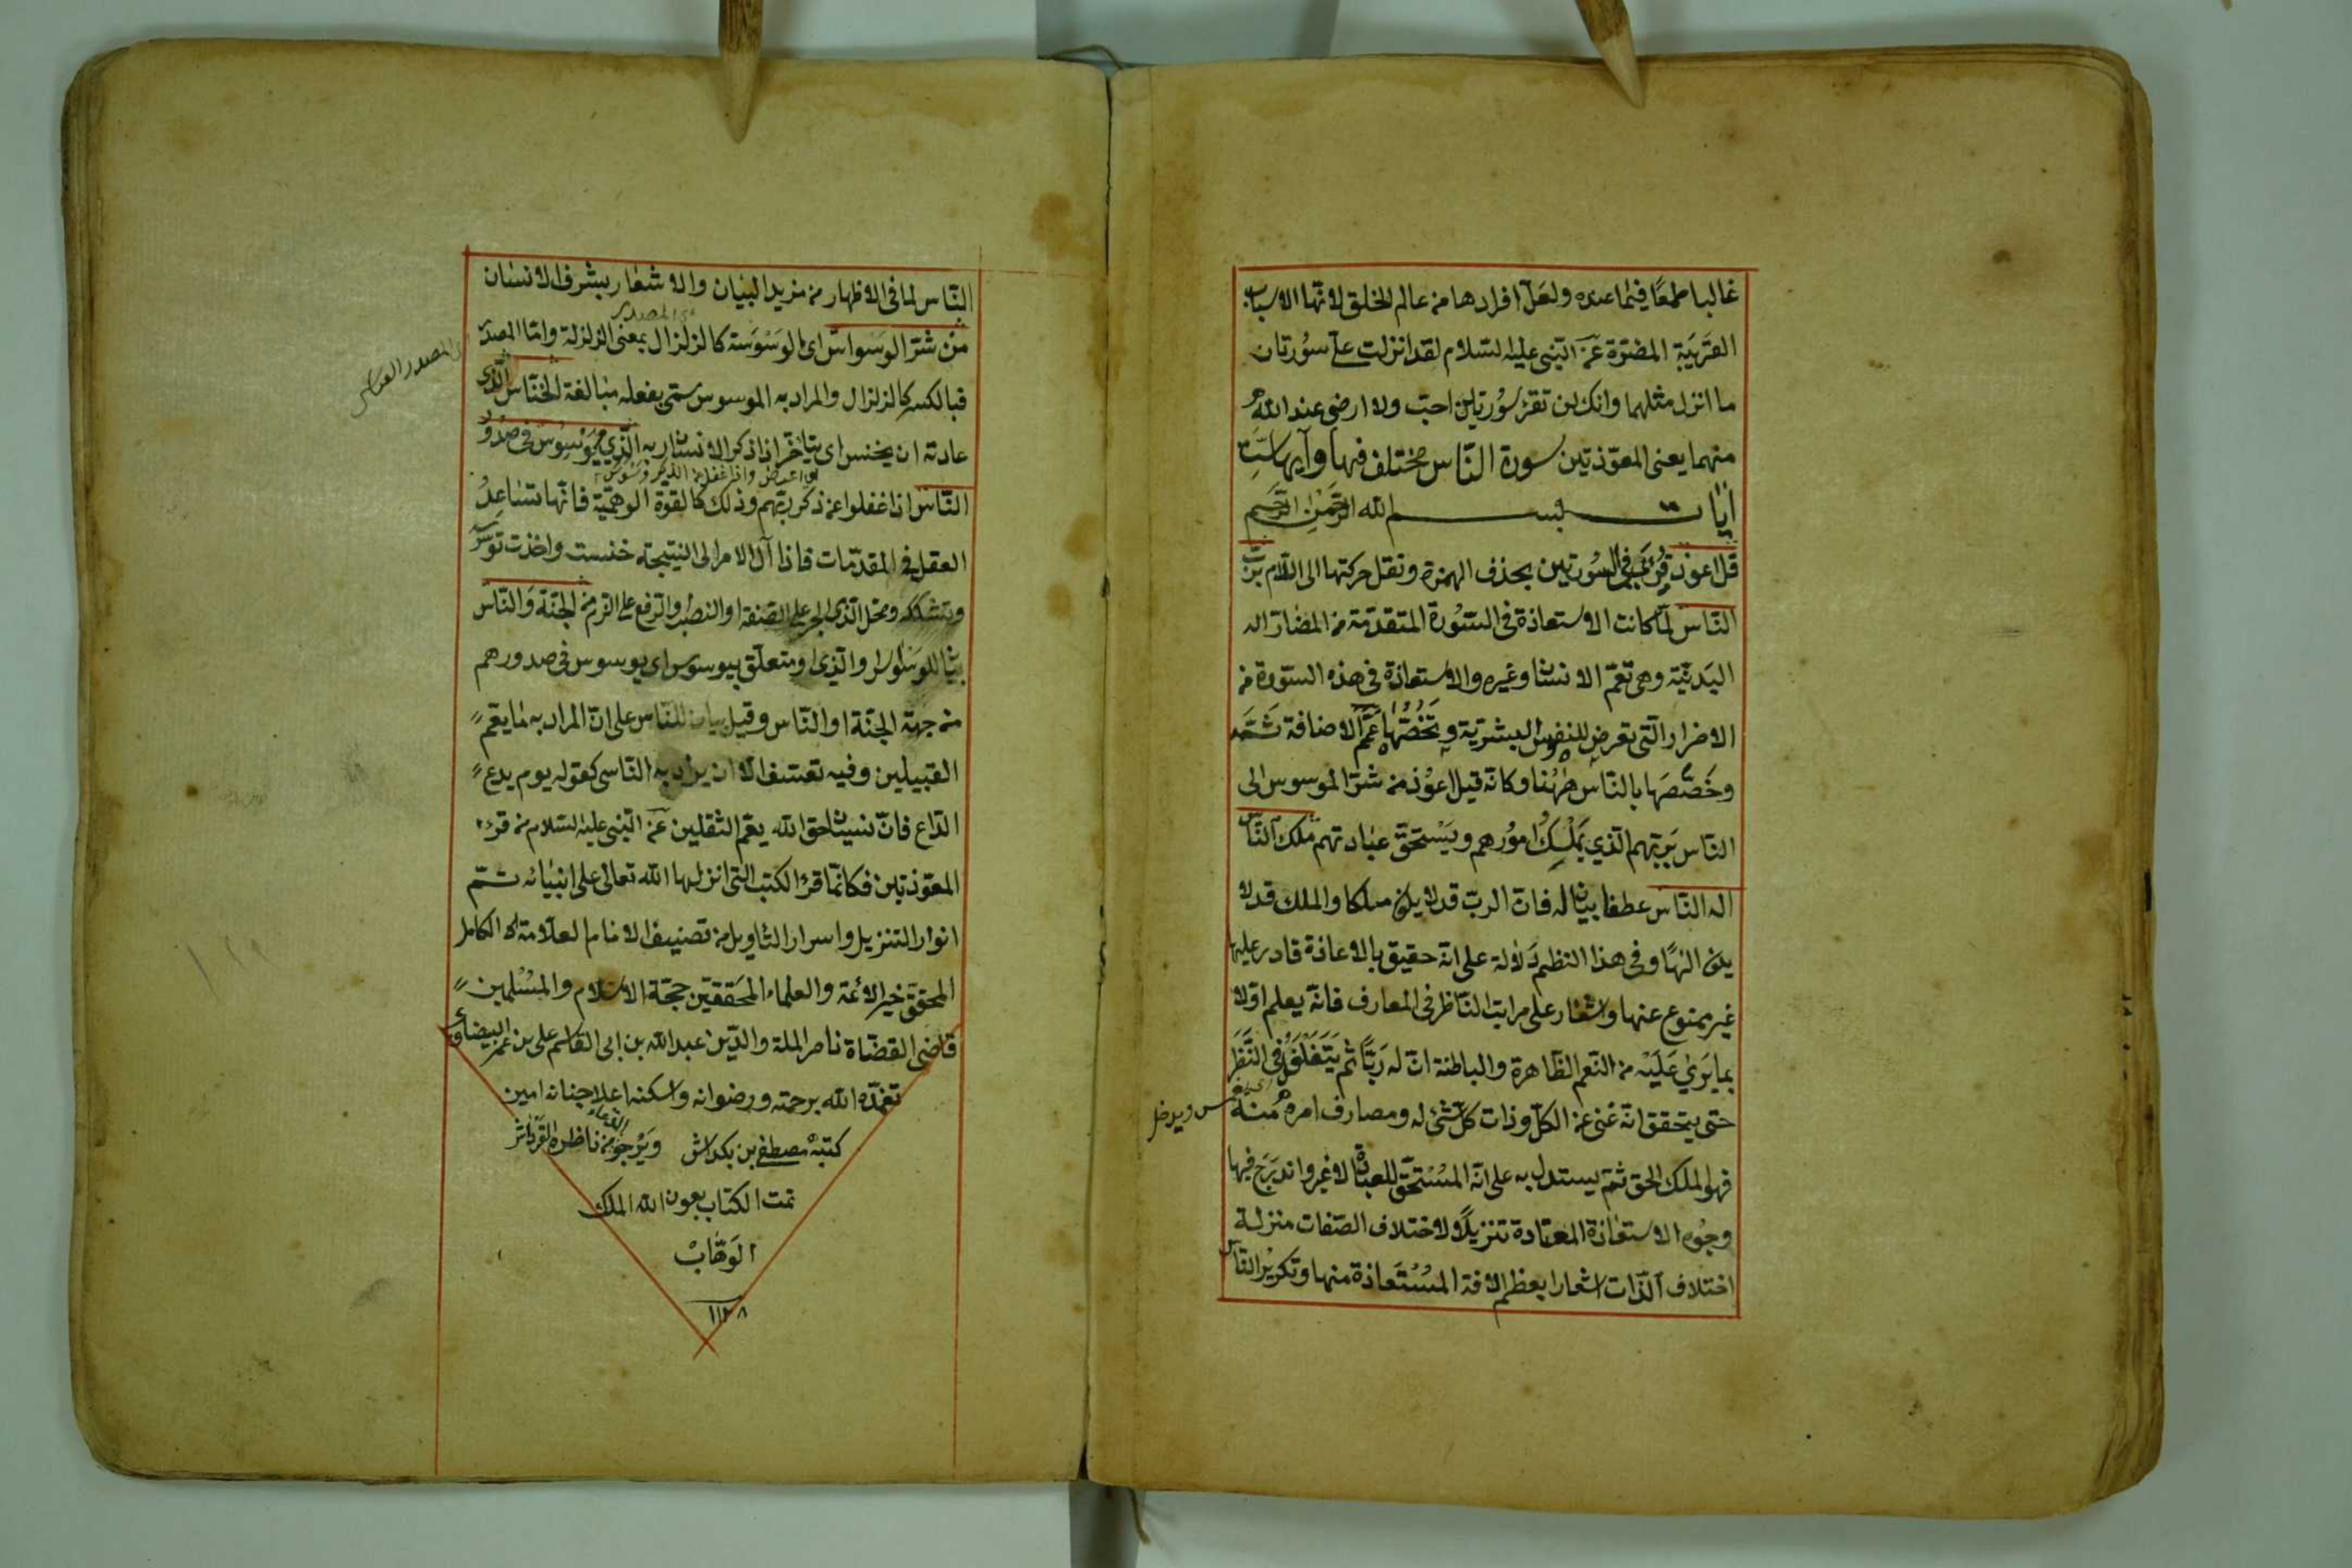 غالبا طمعًا فيما عنده ولعلّ افرادها من عالم الخلق لانّها الاسباب
القريبة المضرّة عن النبى عليه السلام لقد انزلت علىّ سورتان
ما انزل مثلهما وانك لن تقرأ سورتين احبّ ولا ارضى عند الله
منهما يعنى المعوّذتين سورة النّاس مختلف فيها وآيها ستّ
آيات بسم الله الرّحمن الرّحيم
قل اعوذ قرئ فى السّورتين بحذف الهمزة ونقل حركتها الى اللام بربّ
النّاس لمّا كانت الاستعاذة فى السّورة المتقدّمة من المضارّ
البدنيّة وهى تعمّ الانسان وغيره والاستعاذة فى هذه السّورة من
الاضرار الّتى تعرض للنفوس البشريّة وتخصّها عمّم الاضافة ثمّه
وخصّصها بالنّاس ههنا وكانّه قيل اعوذ من شرّ الموسوس الى
النّاس بربّهم الّذي يملك امورهم ويستحقّ عبادتهم ملك النّاس
اله النّاس عطفا بيان له فانّ الربّ قد لا يكون ملكا والملك قد لا
يكون الهًا وفى هذا النظم دلالة على انّه حقيق بالاعاذة قادر عليها
غير ممنوع عنها واشعار على مراتب النّاظر فى المعارف فانّه يعلم اوّلا
بما يرى عليه من النّعم الظّاهرة والباطنة انّ له ربًّا ثم يتغلغل فى النّظر
حتى يتحقق انّه غنى عن الكلّ وذات كلّ شئ له ومصارف امره منه
فهو الملك الحق ثمّ يستدل به على انّه المستحقّ للعبادة لا غير واندرج فيها
وجوه الاستعاذة المعتادة تنزيلًا لاختلاف الصّفات منزلة
اختلاف الذّات اشعارا بعظم الافة المستعاذة منها وتكرير النّاس
النّاس لما فى الاظهار من مزيد البيان والاشعار بشرف الانسان
من شرّ الوسواس اى الوسوسة كالزلزال بمعنى الزلزلة وامّا المصدر
فبالكسر كالزلزال والمراد به الموسوس سمّى بفعله مبالغة الخنّاس الّذى
عادته ان يخنس اى يتأخّر اذا ذكر الانسان ربه الّذي يوسوس فى صدور
النّاس اذا غفلوا عن ذكر ربّهم وذلك كالقوّة الوهميّة فانّها تساعد
العقل فى المقدّمات فاذا آل الامر الى النتيجة خنست واخذت توسوس
وتشكك ومحلّ الّذى الجر على الصّفة او النصب والرّفع على الذم من الجنّة والنّاس
بيان للوسواس او الّذى او متعلّق بيوسوس اى يوسوس فى صدورهم
من جهة الجنّة والنّاس وقيل بيان للنّاس على انّ المراد به ما يعمّ
القبيلين وفيه تعسّف الّا ان يراد به النّاسى كقوله يوم يدع
الدّاع فانّ نسيان حق الله يعمّ الثقلين عن النّبى عليه السلام من قرء
المعوّذتين فكانّما قرأ الكتب الّتى انزلها الله تعالى على انبيائه تمّ
انوار التنزيل واسرار التأويل من تصنيف الامام العلّامة الكامل
المحقّق خير الائمّة والعلماء المحقّقين حجّة الاسلام والمسلمين
قاضى القضاة ناصر الملة والدّين عبد الله بن ابى القاسم على بن عمر البيضاوى
تغمّده الله برحمته ورضوانه واسكنه اعلا جنانه امين
كتبه مصطفى بن بكداش ويرجو من ناظره الدّعاء
تمت الكتاب بعون الله الملك
الوهّاب
١١٢٨